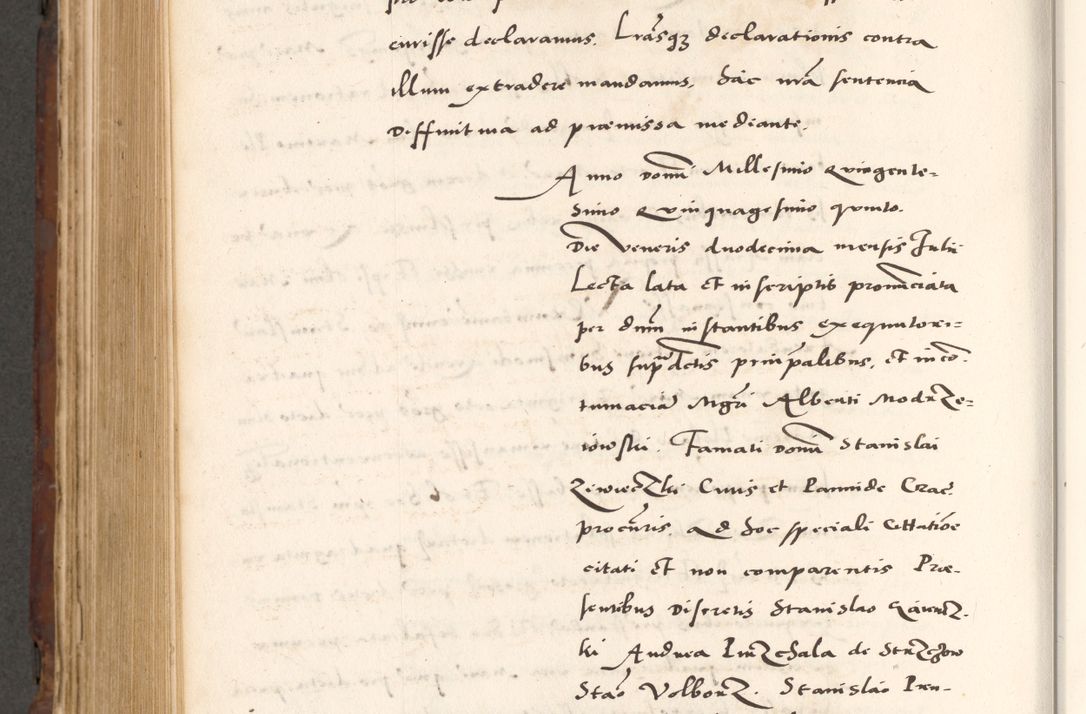 curisse declaramus. Lrasq3 declarationis contra
illum extradere mandamus, hac nra sentencia
Deffinitiua ad præmissa mediante.
Anno Domi Millesimo Quingente-
simo Quinquagesimo quinto.
Die Veneris duodecima mensis Julii
Lecta lata et in scriptis pronuciata
per dnm instantibus exequutori-
bus supradictis principalibus, et in co-
tumacia Mgri Alberti
iowski. Famati Domi Stanislai
Ciuis et Crac.
procuris ad hoc speciali Cittatioe
citati et non comparentis Præ-
sentibus Discretis Stanislao
ki Andrea de
Stao Volborz. Stanislao